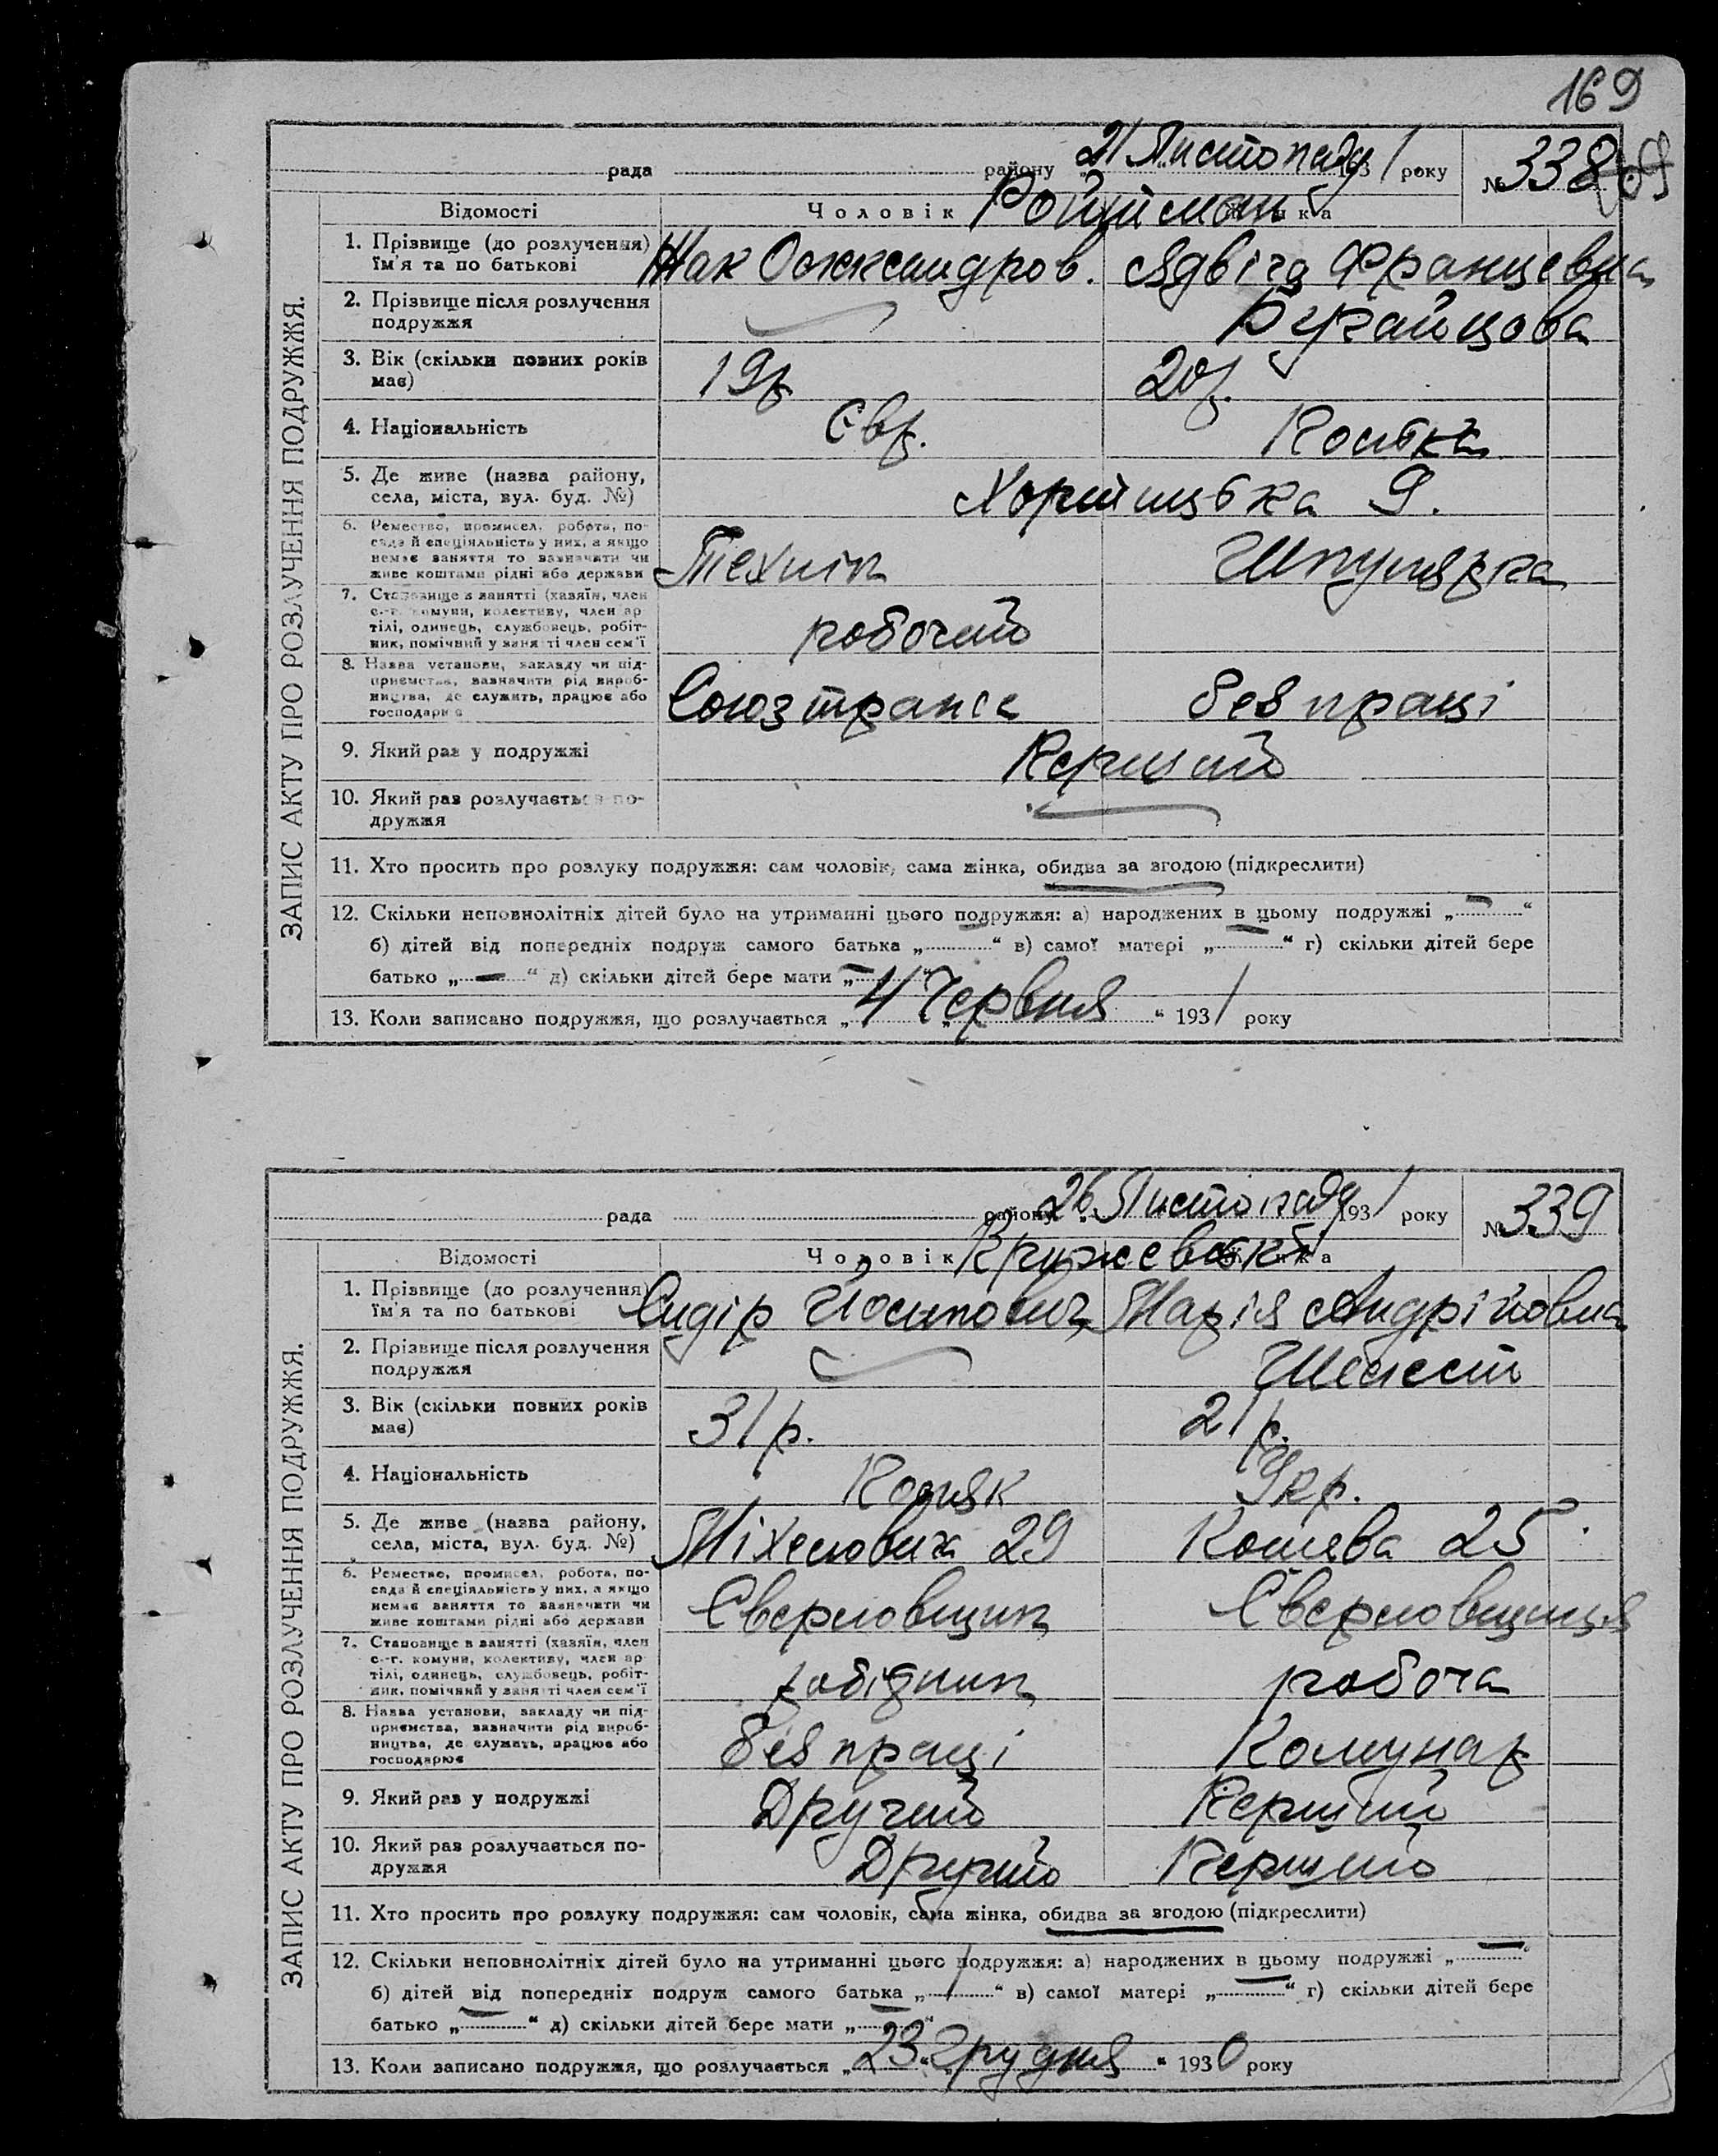 169
рада району 21 Листопаду 1931 року № 338
Відомості Чоловік Жінка
Ройтман
1. Прізвище (до розлучення) Жак Олександров. Ядвіга Францевна
їм'я та по батькові
2. Прізвище після розлучення
подружжя
3. Вік (скільки повних років 19 р. 20 р.
має)
4. Національність Євр. Полька
5. Де живе (назва району, Хортицька 9.
села, міста, вул. буд. №)
6. Ремество, промисел, робота, по-
сада й спеціяльність у них, а якщо
немає заняття то зазначити чи
живе коштами рідні або держави Технік Шпулярка
7. Становище в занятті (хазяїн, член
с.-г. комуни, колективу, член ар
тілі, одинець, службовець, робіт-
ник, помічний у занятті член сем'ї робочий
8. Назва установи, закладу чи під-
приємства, зазначити рід вироб-
ництва, де служить, працює або Союзтранс без праці
господарює
9. Який раз у подружжі Перший
10. Який раз розлучається по-
дружжя
11. Хто просить про розлуку подружжя: сам чоловік, сама жінка, обидва за згодою (підкреслити)
12. Скільки неповнолітніх дітей було на утриманні цього подружжя: а) народжених в цьому подружжі „ — “
б) дітей від попередніх подруж самого батька „ “ в) самої матері „ — “ г) скільки дітей бере
батько „ — “ д) скільки дітей бере мати „ — “
13. Коли записано подружжя, що розлучається „ 4 “ Червня “ 1931 року
ЗАПИС АКТУ ПРО РОЗЛУЧЕННЯ ПОДРУЖЖЯ.
рада району 26 Листопаду 1931 року № 339
Відомості Чоловік Жінка
Кружевські
1. Прізвище (до розлучення) Сидір Йосипович Марія Андріївна
їм'я та по батькові
2. Прізвище після розлучення
подружжя
3. Вік (скільки повних років 31 р. 21 р.
має)
4. Національність Поляк Укр.
5. Де живе (назва району, 29 25
села, міста, вул. буд. №)
6. Ремество, промисел, робота, по-
сада й спеціяльність у них, а якщо
немає заняття то зазначити чи
живе коштами рідні або держави Сверловщик Сверловщиця
7. Становище в занятті (хазяїн, член
с.-г. комуни, колективу, член ар
тілі, одинець, службовець, робіт-
ник, помічний у занятті член сем'ї робідник робоча
8. Назва установи, закладу чи під-
приємства, зазначити рід вироб-
ництва, де служить, працює або без праці Комунар
господарює
9. Який раз у подружжі Другий Перший
10. Який раз розлучається по- Другий Перший
дружжя
11. Хто просить про розлуку подружжя: сам чоловік, сама жінка, обидва за згодою (підкреслити)
12. Скільки неповнолітніх дітей було на утриманні цього подружжя: а) народжених в цьому подружжі „ — “
б) дітей від попередніх подруж самого батька „ 1 “ в) самої матері „ — “ г) скільки дітей бере
батько „ — “ д) скільки дітей бере мати „ — “
13. Коли записано подружжя, що розлучається „ 23 “ Грудня “ 1930 року
ЗАПИС АКТУ ПРО РОЗЛУЧЕННЯ ПОДРУЖЖЯ.